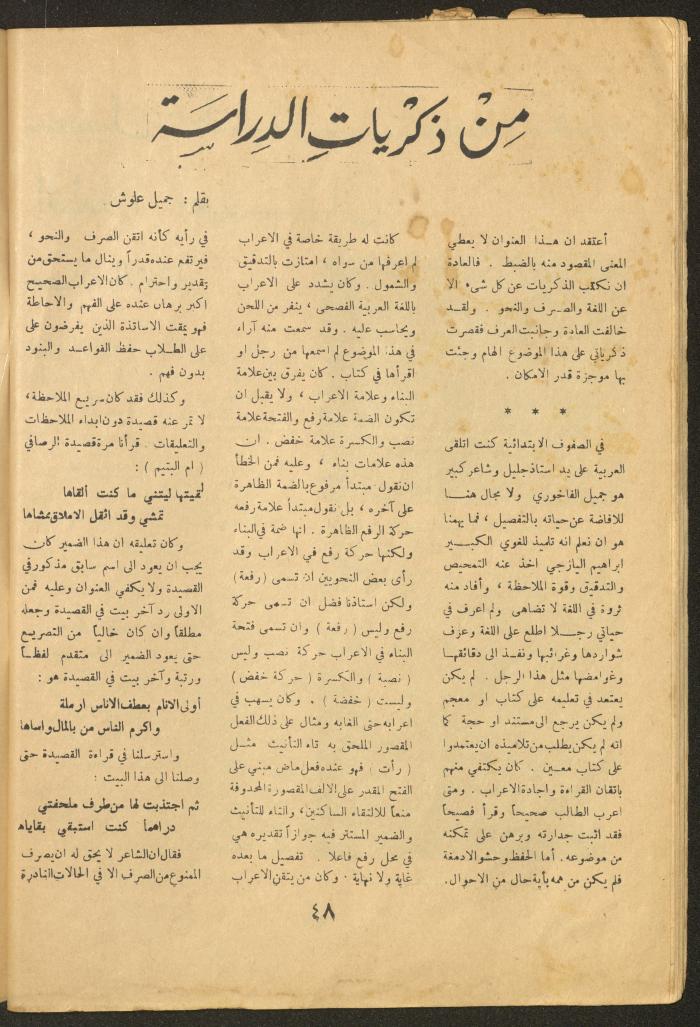 مِنْ ذكْرياتِ الدِراسَة
بقلم : جميل علوش
أعتقد ان هـذا العنوان لا يعطي
المعنى المقصود منه بالضبط . فالعادة
ان نكتب الذكريات عن كل شيء الا
عن اللغة والصرف والنحو . ولقـد
خالفت العادة وجانبت العرف فقصرت
ذكرياتي على هذا الموضوع الهام وجئت
بها موجزة قدر الامكان .
* * *
في الصفوف الابتدائية كنت اتلقى
العربية على يد استاذ جليل وشاعر كبير
هو جميل الفاخوري ولا مجال هنـا
للافاضة عن حياته بالتفصيل ، فما يهمنا
هو ان نعلم انه تلميذ للغوي الكبـير
ابراهيم اليازجي اخذ عنه التمحيص
والتدقيق وقوة الملاحظة ، وأفاد منه
ثروة في اللغة لا تضاهى ولم اعرف في
حياتي رجـلا اطلع على اللغة وعرف
شواردها وغرائبها ونفـذ الى دقائقهـا
وغوامضها مثل هذا الرجل . لم يكن
يعتمد في تعليمه على كتاب او معجم
ولم يكن يرجع الى مستند او حجة كما
انه لم يكن يطلب من تلاميذه ان يعتمدوا
على كتاب معـين . كان يكتفي منهم
باتقان القراءة واجادة الاعراب . ومتى
اعرب الطالب صحيحاً وقرأ فصيحاً
فقد اثبت جدارته وبرهن على تمكنه
من موضوعه . أما الحفظ وحشو الادمغة
فلم يكن من همه بأية حال من الاحوال .
كانت له طريقة خاصة في الاعراب
لم اعرفها من سواه ، امتازت بالتدقيق
والشمول . وكان يشدد على الاعراب
باللغة العربية الفصحى ، ينفر من اللحن
ويحاسب عليه . وقد سمعت منه آراء
في هذا الموضوع لم اسمعها من رجل او
اقرأها في كتاب . كان يفرق بين علامة
البناء وعلامة الاعراب ، ولا يقبل ان
تكون الضمة علامة رفع والفتحة علامة
نصب والكسرة علامة خفض . ان
هذه علامات بناء ، وعليه فمن الخطأ
ان نقول مبتدأ مرفوع بالضمة الظاهرة
على آخره ، بل نقول مبتدأ علامة رفعه
حركة الرفع الظاهرة . انها ضمة في البناء
ولكنها حركة رفع في الاعراب وقد
رأى بعض النحويين ان تسمى (رفعة)
ولكن استاذنا فضل ان تسمى حركة
رفع وليس ( رفعة ) وان تسمى فتحة
البناء في الاعراب حركة نصب وليس
( نصبة ) والكسرة ( حركة خفض )
وليست ( خفضة ) . وكان يسهب في
اعرابه حتى الغاية ومثال على ذلك الفعل
المقصور الملحق به تاء التأنيث مثـل
( رأت ) فهو عنده فعل ماض مبني على
الفتح المقدر على الالف المقصورة المحذوفة
منعاً للالتقاء الساكنين ، والتاء للتأنيث
والضمير المستتر فيه جوازاً تقديره هي
في محل رفع فاعلا . تفصيل ما بعده
غاية ولا نهاية . وكان من يتقن الاعراب
في رأيه كأنه اتقن الصرف والنحو ،
فيرتفع عنده قدراً وينال ما يستحق من
تقدير واحترام . كان الاعراب الصحيح
اكبر برهان عنده على الفهم والاحاطة
فهو يمقت الاساتذة الذين يفرضون على
على الطـلاب حفظ القواعـد والبنود
بدون فهم .
وكذلك فقد كان سريع الملاحظة ،
لا تمر عنه قصيدة دون ابداء الملاحظات
والتعليقات . قرأنا مرة قصيدة الرصافي
( ام اليتيم ) :
لقيتها ليتني ما كنت ألقاها
تمشي وقد اثقل الاملاق ممشاها
وكان تعليقه ان هذا الضمير كان
يجب ان يعود الى اسم سابق مذكور في
القصيدة ولا يكفي العنوان وعليه فمن
الاولى رد آخر بيت في القصيدة وجعله
مطلقاً وان كان خالياً من التصريع
حتى يعود الضمير الى متقدم لفظـاً
ورتبة وآخر بيت في القصيدة هو :
أولى الانام بعطف الاناس ارملة
واكرم الناس من بالمال واساها
واسترسلنا في قراءة القصيدة حتى
وصلنا الى هذا البيت :
ثم اجتذبت لها من طرف ملحفتي
دراهماً كنت استبقي بقاياها
فقال ان الشاعر لا يحق له ان يصرف
الممنوع من الصرف الا في الحالات النادرة
٤٨